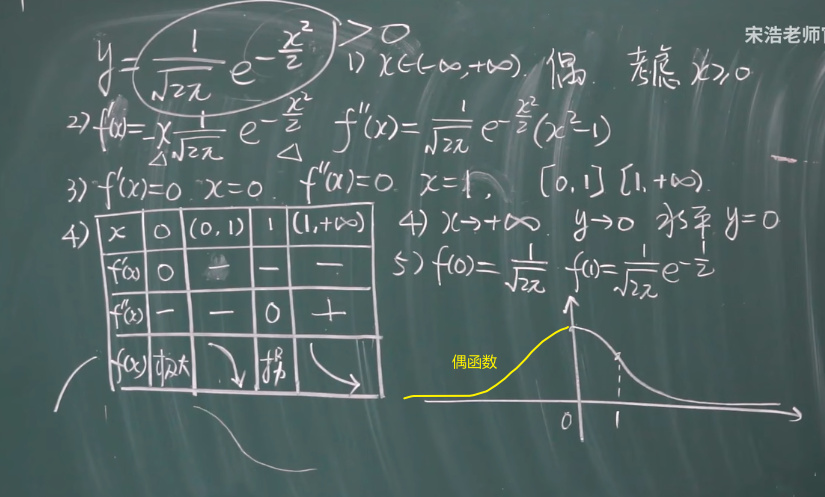 宋浩老师官
y = 1/√2π e^(-x²/2) > 0
1) x∈(-∞,+∞). 偶. 考虑 x≥0
2) f'(x) = -x 1/√2π e^(-x²/2) f''(x) = 1/√2π e^(-x²/2) (x²-1)
3) f'(x)=0. x=0. f''(x)=0. x=1. [0,1] [1,+∞).
4)
x 0 (0,1) 1 (1,+∞)
f'(x) 0 - - -
f''(x) - - 0 +
f(x) 极大 拐
4) x→+∞ y→0 水平 y=0
5) f(0) = 1/√2π f(1) = 1/√2π e^(-1/2)
偶函数
0 1